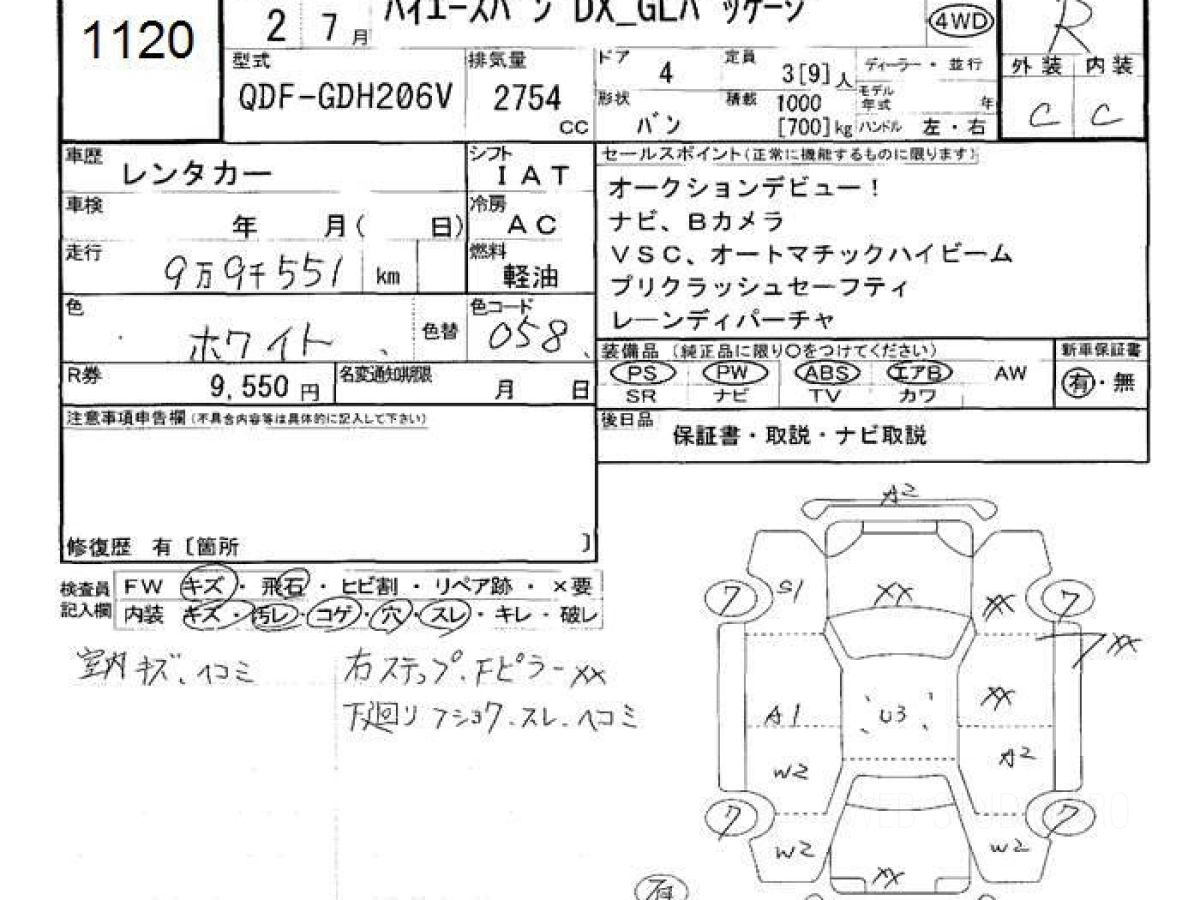 1120
2 7月
ハイエースバン DX_GLパッケージ
4WD
R
型式
QDF-GDH206V
排気量
2754
CC
ドア
4
定員
3[9]人
ディーラー・並行
外装 内装
C C
形状
バン
積載
1000
[700]kg
モデル
年式
年
ハンドル 左・右
車歴
レンタカー
シフト
IAT
車検
年 月( 日)
冷房
AC
走行
9万9千551 km
燃料
軽油
色
ホワイト
色替
色コード
058
R券
9,550円
名変通知期限
月 日
セールスポイント(正常に機能するものに限ります)
オークションデビュー!
ナビ、Bカメラ
VSC、オートマチックハイビーム
プリクラッシュセーフティ
レーンディパーチャ
装備品 (純正品に限り○をつけてください)
PS PW ABS エアB AW
SR ナビ TV カワ
新車保証書
有・無
後日品
保証書・取説・ナビ取説
注意事項申告欄(不具合内容等は具体的に記入して下さい)
修復歴 有〔箇所 〕
検査員
記入欄
FW キズ・飛石・ヒビ割・リペア跡・×要
内装 キズ・汚レ・コゲ・穴・スレ・キレ・破レ
室内キズ、ヘコミ
右ステップ.Fピラーxx
下廻りフショク.スレ.ヘコミ
A2
S1 xx xx
フ フ
フxx
A1 U3 xx
W2 A2
フ フ
W2 W2
xx